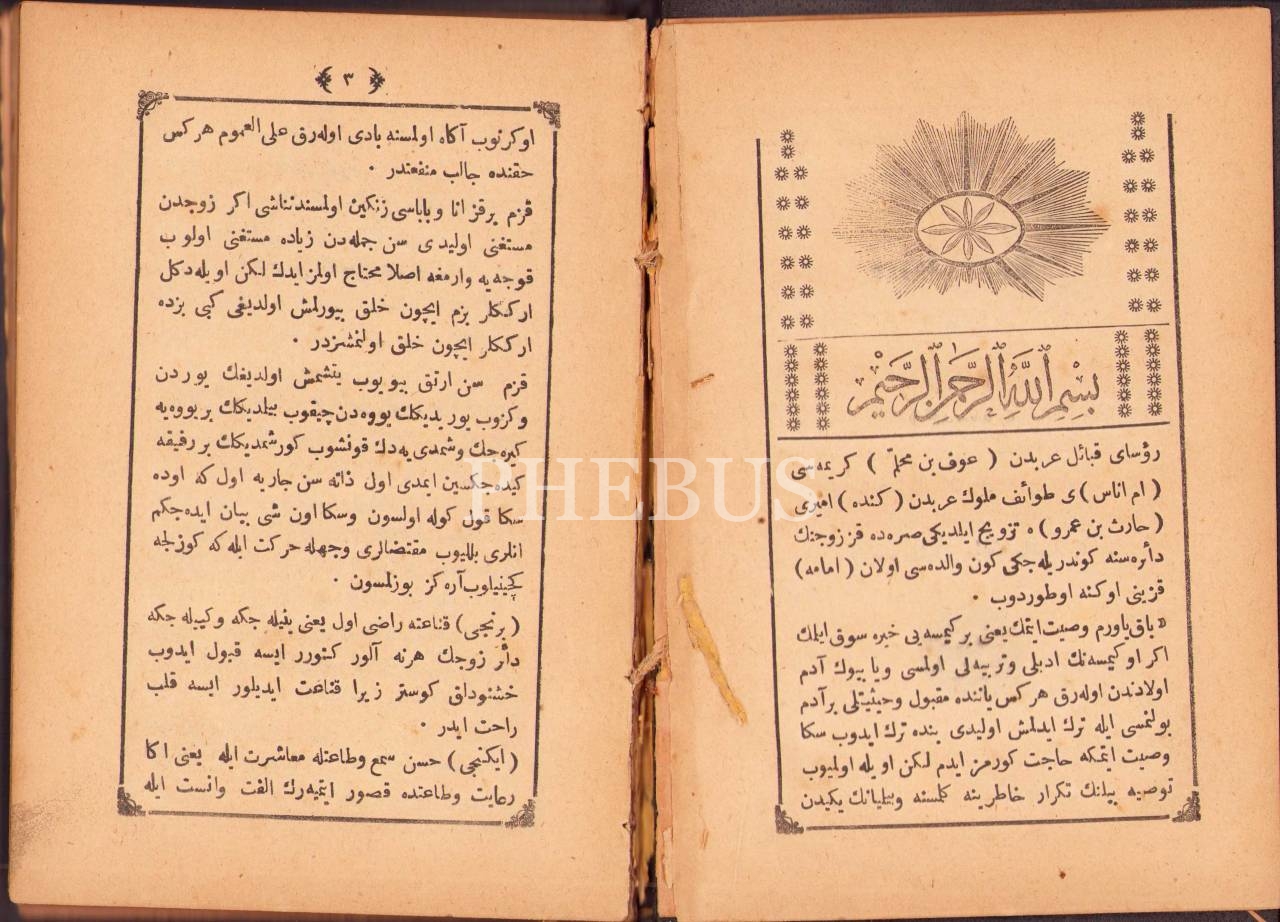 بسم الله الرحمن الرحيم
رؤسای قبائل عربدن ( عوف بن محلم ) کریمه‌سی
( ام اناس ) ی طوائف ملوك عربدن ( کنده ) امیری
( حارث بن عمرو ) ه تزویج ایلدیکی صره‌ده قز زوجنك
دائره‌سنه کوندریله‌جکی کون والده‌سی اولان ( امامه )
قزینی اوکنه اوطوردوب ·
« باق یاورم وصیت ایتمك یعنی بر کیمسه‌یی خیره سوق ایلمك
اکر او کیمسه‌نك ادبلی و تربیه‌لی اولمسی ویا بیوك آدم
اولادندن اوله‌رق هرکس یاننده مقبول وحیثیتلی بر آدم
بولنمسی ایله ترك ایدلمش اولیدی بنده ترك ایدوب سکا
وصیت ایتمکه حاجت کورمز ایدم لکن او یله اولمیوب
توصیه بیلنك تکرار خاطرینه کلمسنه وبیلمیانك یکیدن
﴿ ٣ ﴾
اوکرنوب آکاه اولمسنه بادی اوله‌رق علی العموم هرکس
حقنده جالب منفعتدر ·
قزم برقز انا وباباسی زنکین اولمسندنناشی اکر زوجدن
مستغنی اولیدی سن جمله‌دن زیاده مستغنی اولوب
قوجه‌یه وارمغه اصلا محتاج اولمز ایدك لکن اویله دکل
ارککلر بزم ایچون خلق بیورلمش اولدیغی کبی بزده
ارککلر ایچون خلق اولنمشزدر ·
قزم سن ارتق بیویوب یتشمش اولدیغك یوردن
وکزوب یوریدیکك یووه‌دن چیقوب بیلمدیکك بر یووه‌یه
کیره‌جك وشمدی‌یه‌دك قونشوب کورشمدیکك بر رفیقه
کیده‌جکسین ایمدی اول ذاته سن جاریه اول که اوده
سکا قول کوله اولسون وسکا اون شی بیان ایده‌جکم
انلری بللیوب مقتضالری وجهله حرکت ایله که کوزلجه
کچینیلوب آره‌کز بوزلمسون ·
( برنجی ) قناعته راضی اول یعنی ییله‌جکه وکییله‌جکه
دائر زوجك هرنه آلور کتورر ایسه قبول ایدوب
خشنودلق کوستر زیرا قناعت ایدیلور ایسه قلب
راحت ایدر ·
( ایکنجی ) حسن سمع وطاعتله معاشرت ایله یعنی اکا
رعایت وطاعتده قصور ایتمیه‌رك الفت وانست ایله
PHEBUS